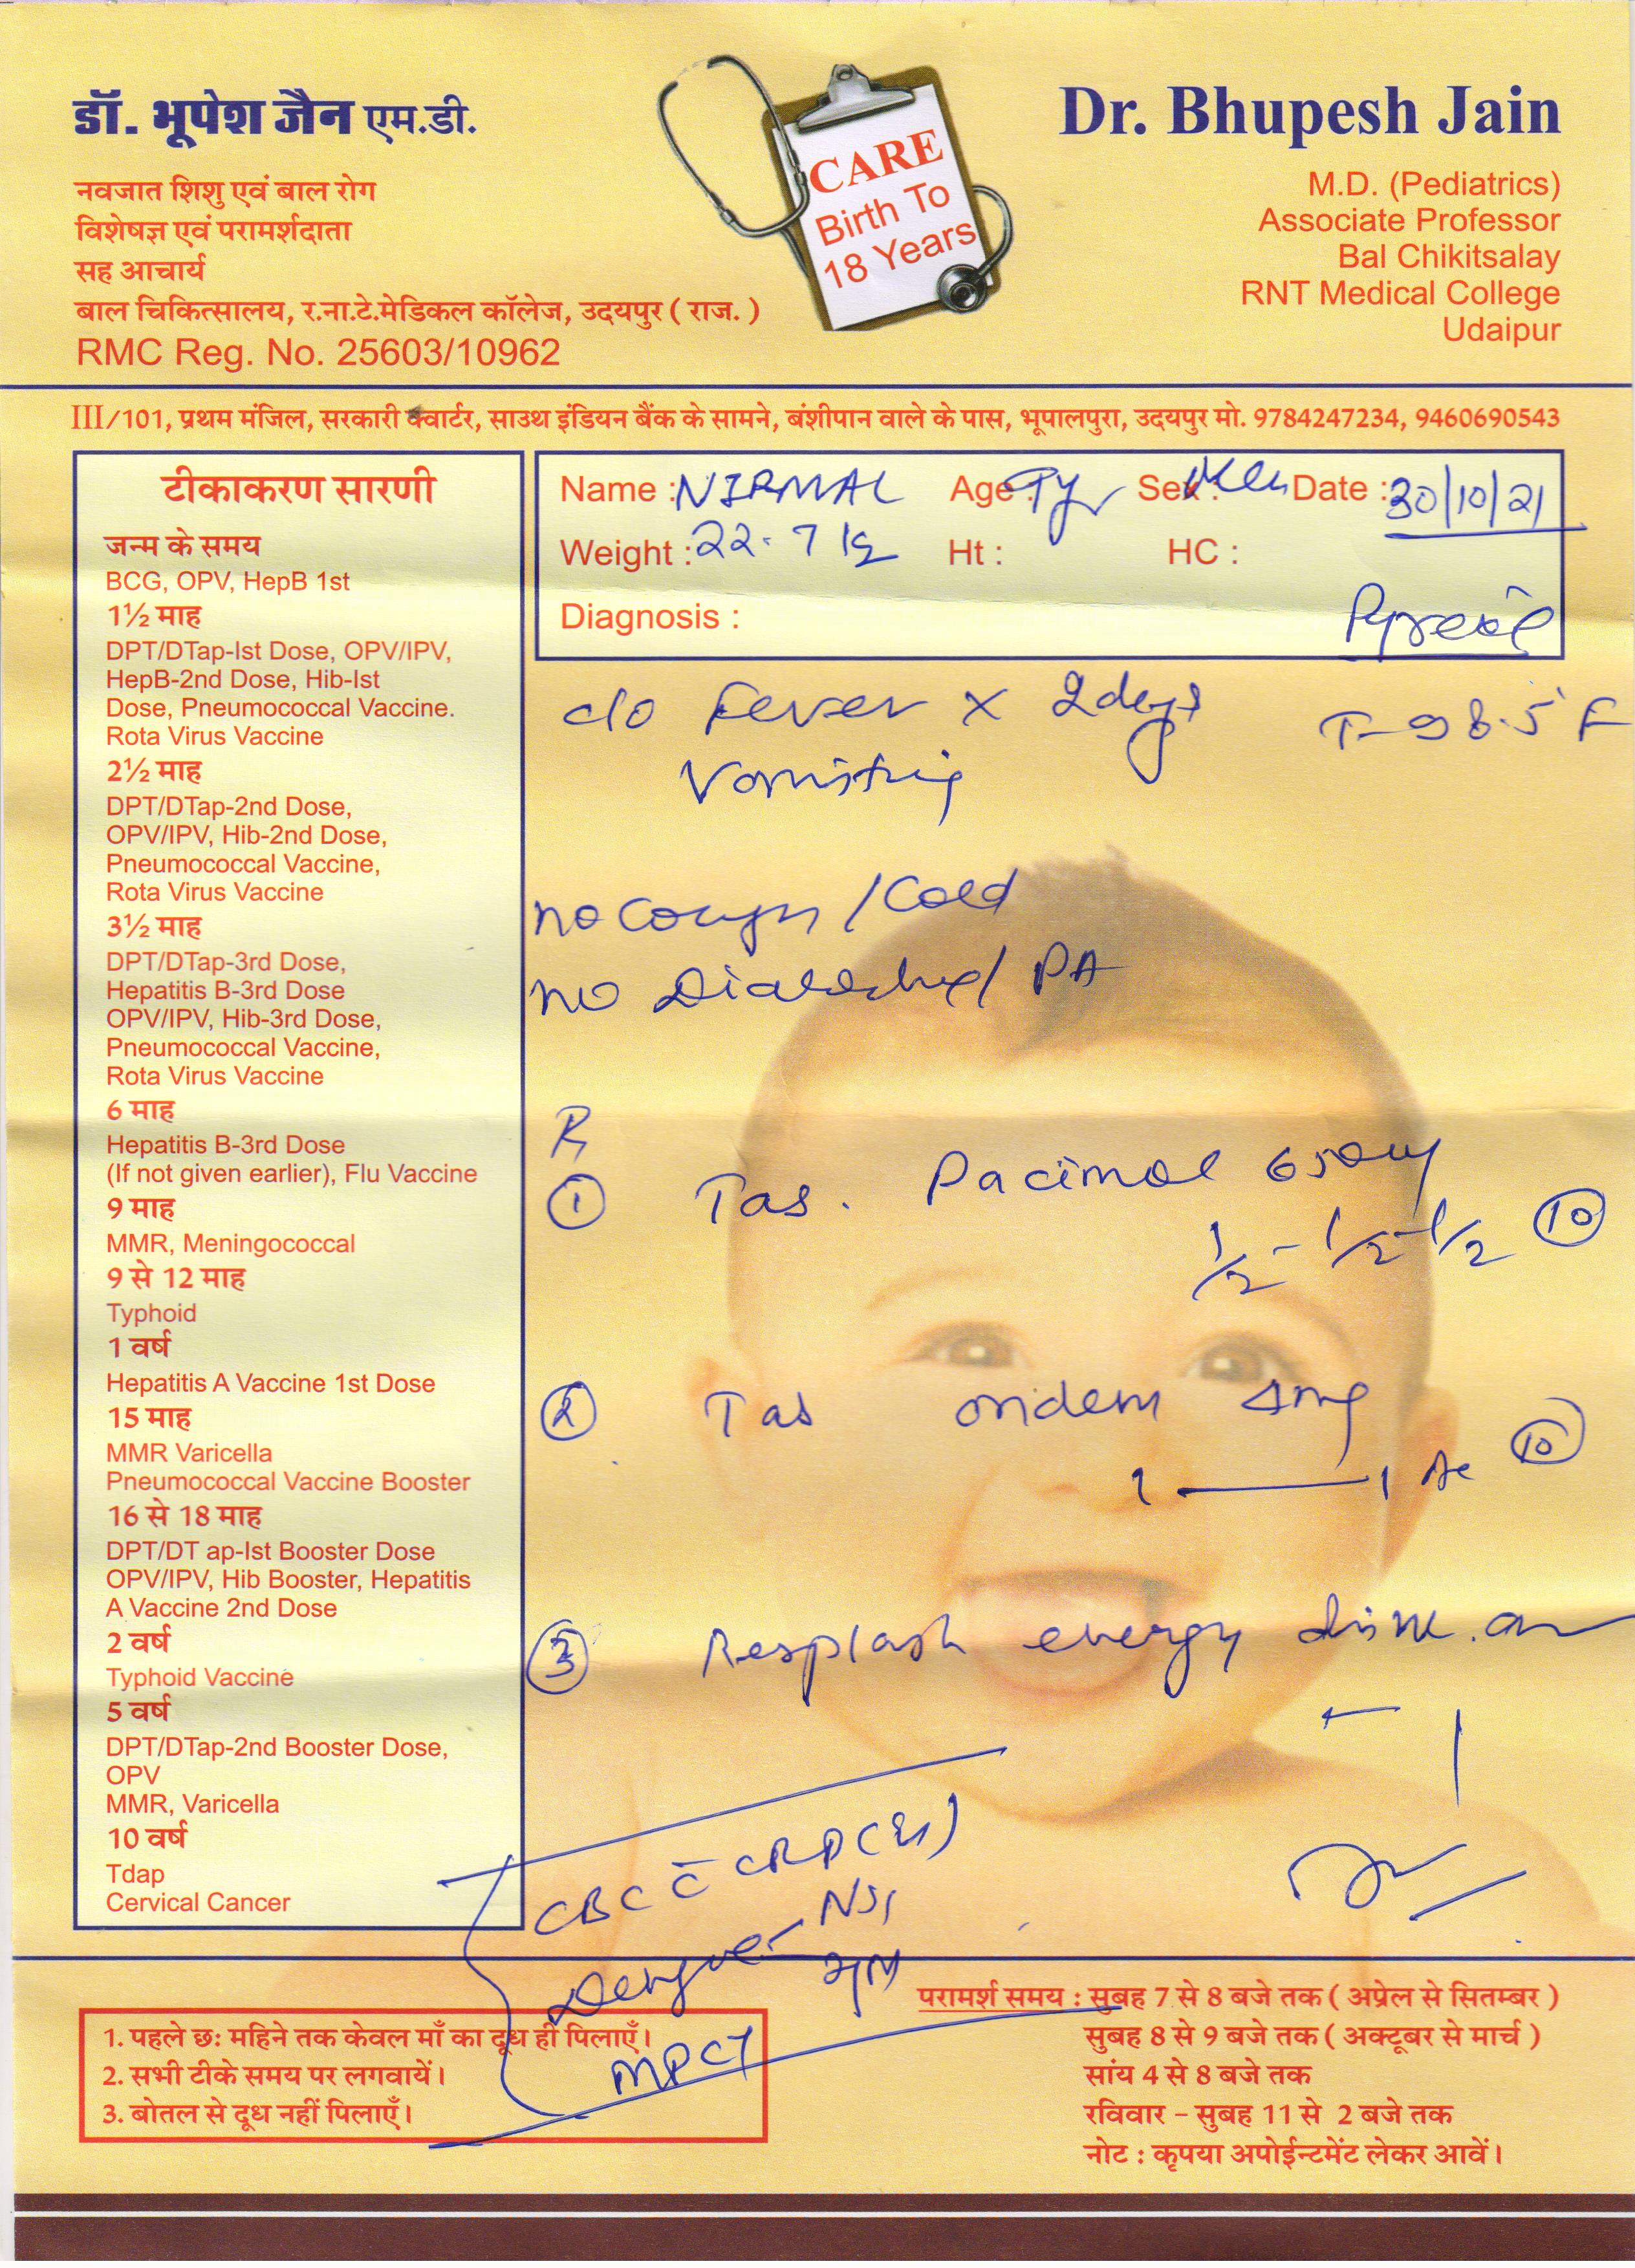 डॉ. भूपेश जैन एम.डी.
नवजात शिशु एवं बाल रोग
विशेषज्ञ एवं परामर्शदाता
सह आचार्य
बाल चिकित्सालय, र.ना.टे.मेडिकल कॉलेज, उदयपुर ( राज. )
RMC Reg. No. 25603/10962
CARE
Birth To
18 Years
Dr. Bhupesh Jain
M.D. (Pediatrics)
Associate Professor
Bal Chikitsalay
RNT Medical College
Udaipur
III/101, प्रथम मंजिल, सरकारी क्वार्टर, साउथ इंडियन बैंक के सामने, बंशीपान वाले के पास, भूपालपुरा, उदयपुर मो. 9784247234, 9460690543
टीकाकरण सारणी
जन्म के समय
BCG, OPV, HepB 1st
1½ माह
DPT/DTap-Ist Dose, OPV/IPV,
HepB-2nd Dose, Hib-Ist
Dose, Pneumococcal Vaccine.
Rota Virus Vaccine
2½ माह
DPT/DTap-2nd Dose,
OPV/IPV, Hib-2nd Dose,
Pneumococcal Vaccine,
Rota Virus Vaccine
3½ माह
DPT/DTap-3rd Dose,
Hepatitis B-3rd Dose
OPV/IPV, Hib-3rd Dose,
Pneumococcal Vaccine,
Rota Virus Vaccine
6 माह
Hepatitis B-3rd Dose
(If not given earlier), Flu Vaccine
9 माह
MMR, Meningococcal
9 से 12 माह
Typhoid
1 वर्ष
Hepatitis A Vaccine 1st Dose
15 माह
MMR Varicella
Pneumococcal Vaccine Booster
16 से 18 माह
DPT/DT ap-Ist Booster Dose
OPV/IPV, Hib Booster, Hepatitis
A Vaccine 2nd Dose
2 वर्ष
Typhoid Vaccine
5 वर्ष
DPT/DTap-2nd Booster Dose,
OPV
MMR, Varicella
10 वर्ष
Tdap
Cervical Cancer
Name : NIRMAL Age : Sex : Date : 30/10/21
Weight : 22.7 kg Ht : HC :
Diagnosis :
Pyrexia
c/o Fever x 2days T-98.5 F
Vomiting
no Cough / Cold
no / PA
R
1 Tab. Pacimol 650mg
1/2 - 1/2 - 1/2 10
2 Tab ondem 4mg
1 — 1 10
3 Resplash energy drink
CBC c CRP
Dengue NS1
IgM
MPCT
1. पहले छः महिने तक केवल माँ का दूध ही पिलाएँ।
2. सभी टीके समय पर लगवायें।
3. बोतल से दूध नहीं पिलाएँ।
परामर्श समय : सुबह 7 से 8 बजे तक ( अप्रेल से सितम्बर )
सुबह 8 से 9 बजे तक ( अक्टूबर से मार्च )
सांय 4 से 8 बजे तक
रविवार – सुबह 11 से 2 बजे तक
नोट : कृपया अपोईन्टमेंट लेकर आवें।